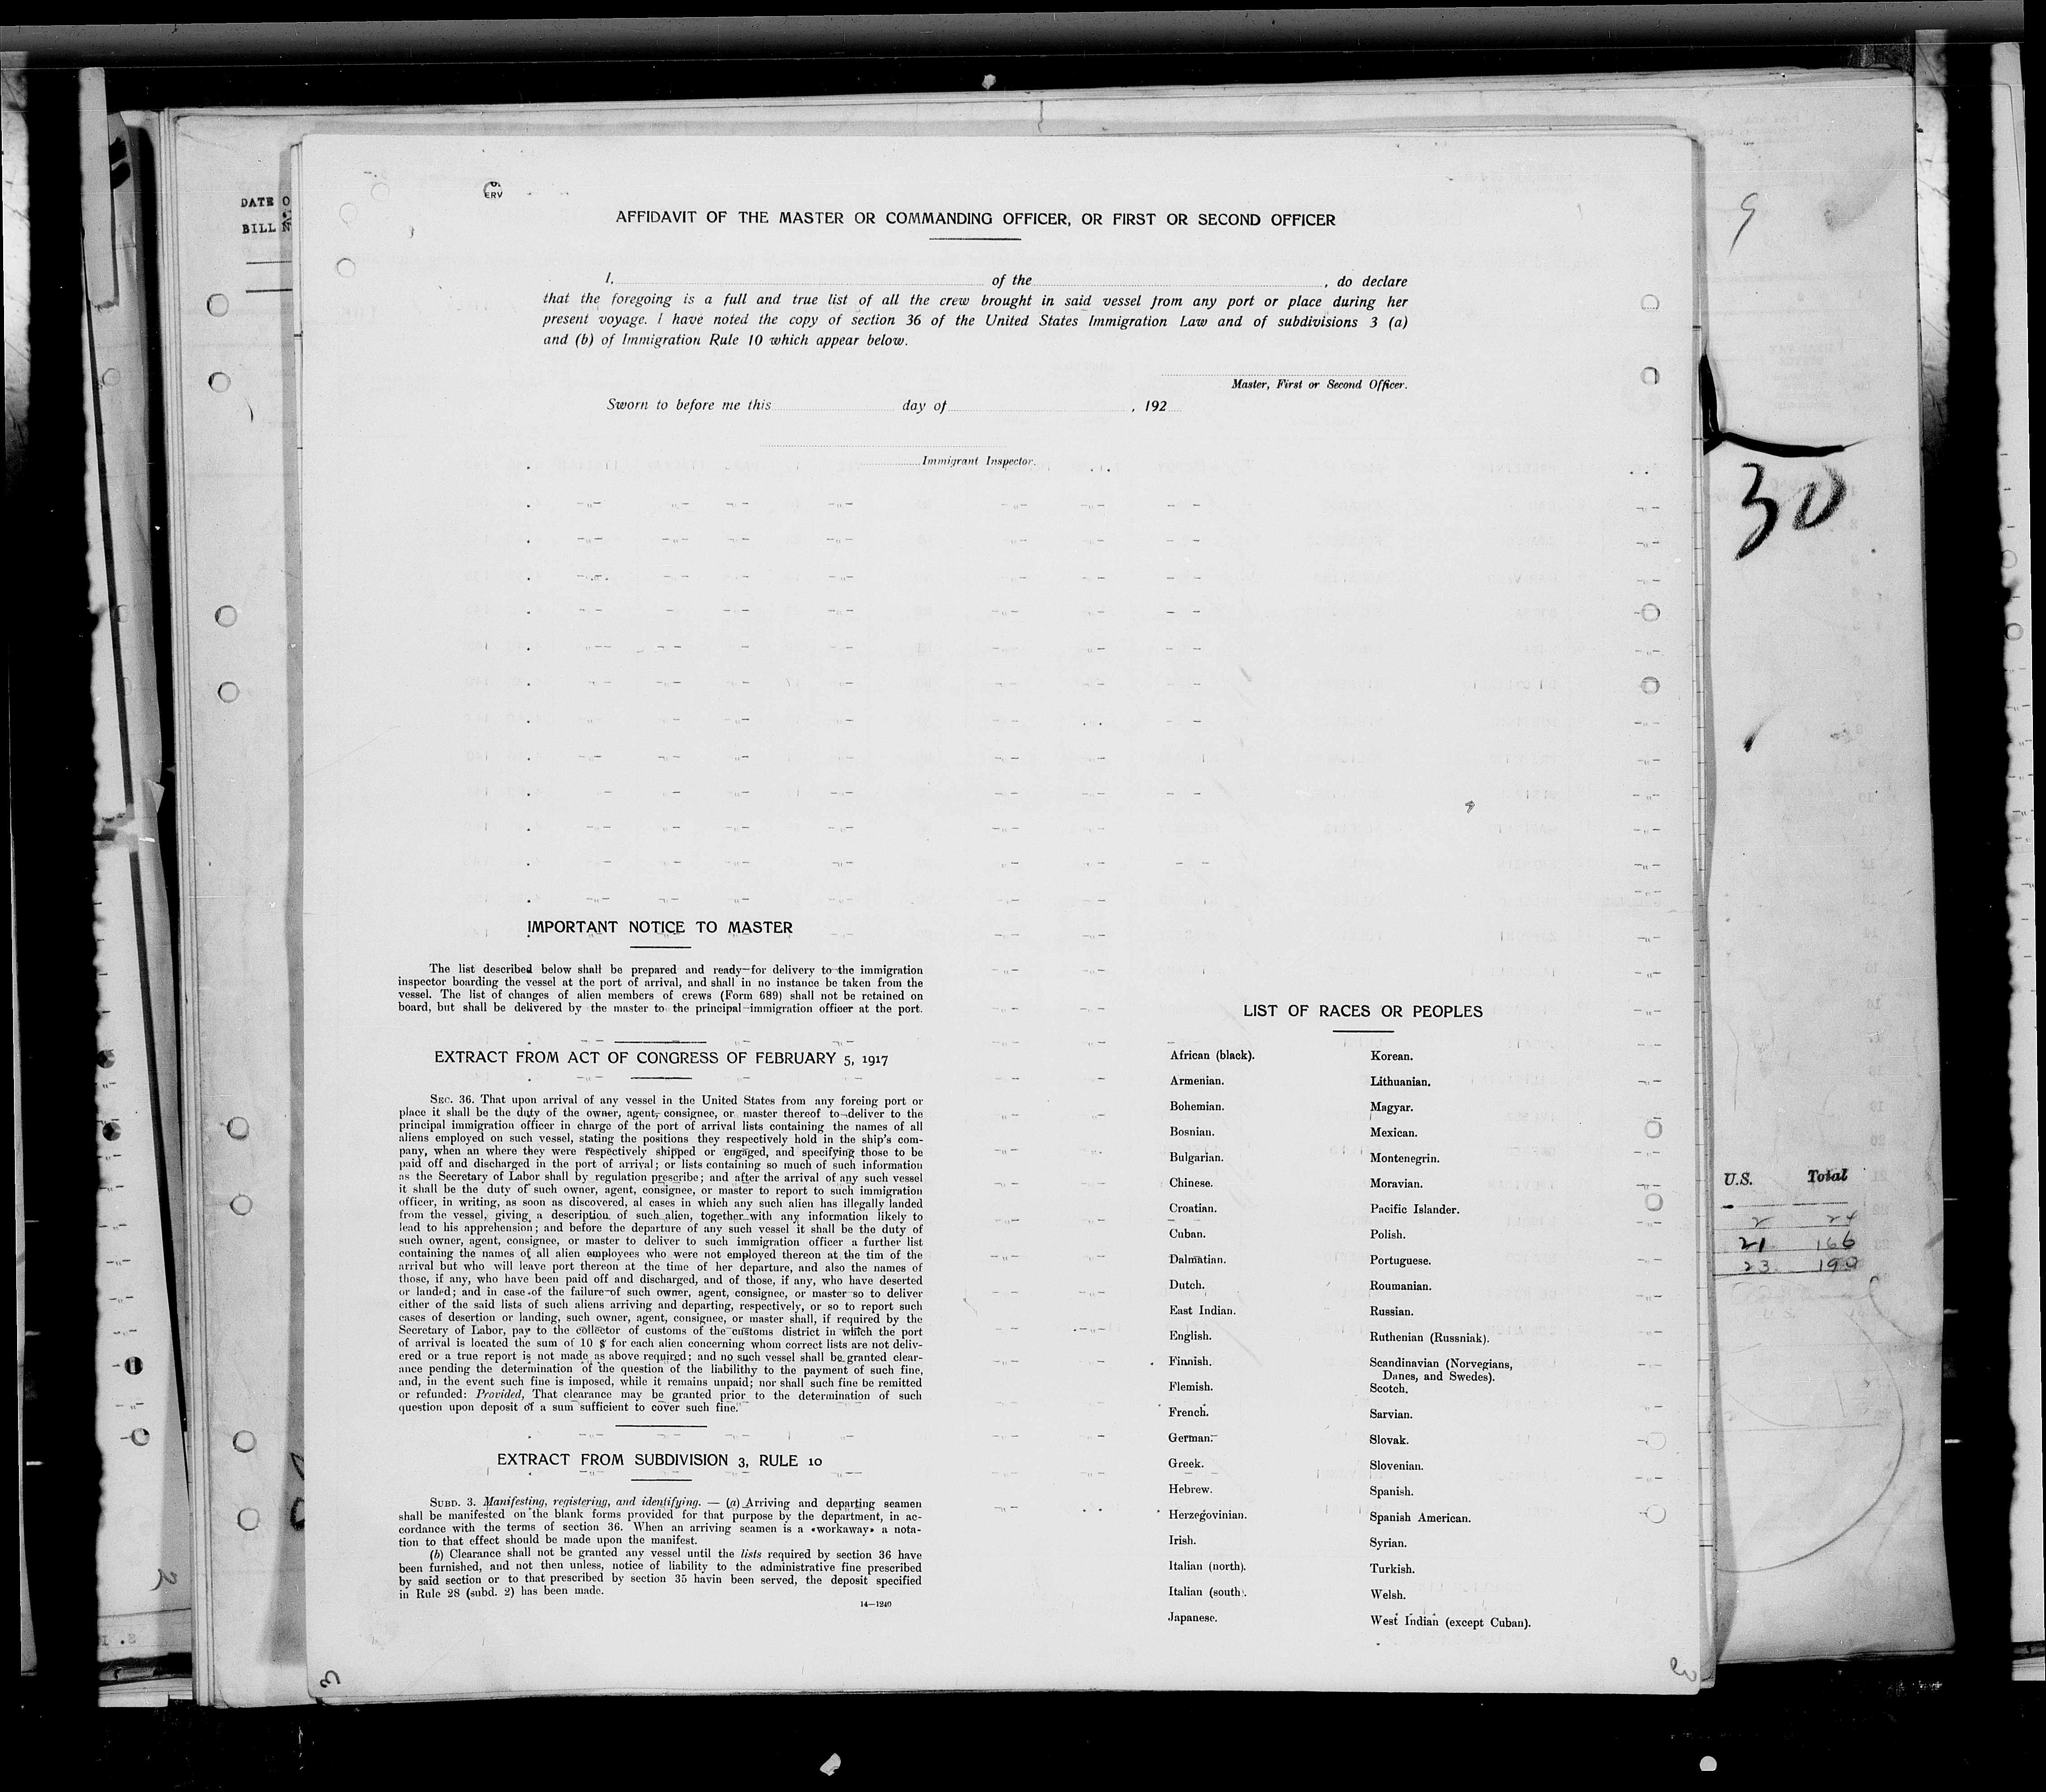 DATE O
BILL N
ERV
AFFIDAVIT OF THE MASTER OR COMMANDING OFFICER, OR FIRST OR SECOND OFFICER
I, of the , do declare
that the foregoing is a full and true list of all the crew brought in said vessel from any port or place during her
present voyage. I have noted the copy of section 36 of the United States Immigration Law and of subdivisions 3 (a)
and (b) of Immigration Rule 10 which appear below.
Master, First or Second Officer.
Sworn to before me this day of , 192
Immigrant Inspector.
9
30
IMPORTANT NOTICE TO MASTER
The list described below shall be prepared and ready for delivery to the immigration
inspector boarding the vessel at the port of arrival, and shall in no instance be taken from the
vessel. The list of changes of alien members of crews (Form 689) shall not be retained on
board, but shall be delivered by the master to the principal immigration officer at the port.
EXTRACT FROM ACT OF CONGRESS OF FEBRUARY 5, 1917
SEC. 36. That upon arrival of any vessel in the United States from any foreing port or
place it shall be the duty of the owner, agent, consignee, or master thereof to deliver to the
principal immigration officer in charge of the port of arrival lists containing the names of all
aliens employed on such vessel, stating the positions they respectively hold in the ship's com-
pany, when an where they were respectively shipped or engaged, and specifying those to be
paid off and discharged in the port of arrival; or lists containing so much of such information
as the Secretary of Labor shall by regulation prescribe; and after the arrival of any such vessel
it shall be the duty of such owner, agent, consignee, or master to report to such immigration
officer, in writing, as soon as discovered, al cases in which any such alien has illegally landed
from the vessel, giving a description of such alien, together with any information likely to
lead to his apprehension; and before the departure of any such vessel it shall be the duty of
such owner, agent, consignee, or master to deliver to such immigration officer a further list
containing the names of all alien employees who were not employed thereon at the tim of the
arrival but who will leave port thereon at the time of her departure, and also the names of
those, if any, who have been paid off and discharged, and of those, if any, who have deserted
or landed; and in case of the failure of such owner, agent, consignee, or master so to deliver
either of the said lists of such aliens arriving and departing, respectively, or so to report such
cases of desertion or landing, such owner, agent, consignee, or master shall, if required by the
Secretary of Labor, pay to the collector of customs of the customs district in which the port
of arrival is located the sum of 10 $ for each alien concerning whom correct lists are not deliv-
ered or a true report is not made as above required; and no such vessel shall be granted clear-
ance pending the determination of the question of the liabilithy to the payment of such fine,
and, in the event such fine is imposed, while it remains unpaid; nor shall such fine be remitted
or refunded: Provided, That clearance may be granted prior to the determination of such
question upon deposit of a sum sufficient to cover such fine."
EXTRACT FROM SUBDIVISION 3, RULE 10
SUBD. 3. Manifesting, registering, and identifying. — (a) Arriving and departing seamen
shall be manifested on the blank forms provided for that purpose by the department, in ac-
cordance with the terms of section 36. When an arriving seamen is a «workaway» a nota-
tion to that effect should be made upon the manifest.
(b) Clearance shall not be granted any vessel until the lists required by section 36 have
been furnished, and not then unless, notice of liability to the administrative fine prescribed
by said section or to that prescribed by section 35 havin been served, the deposit specified
in Rule 28 (subd. 2) has been made.
14—1240
LIST OF RACES OR PEOPLES
African (black).
Armenian.
Bohemian.
Bosnian.
Bulgarian.
Chinese.
Croatian.
Cuban.
Dalmatian.
Dutch.
East Indian.
English.
Finnish.
Flemish.
French.
German.
Greek.
Hebrew.
Herzegovinian.
Irish.
Italian (north).
Italian (south).
Japanese.
Korean.
Lithuanian.
Magyar.
Mexican.
Montenegrin.
Moravian.
Pacific Islander.
Polish.
Portuguese.
Roumanian.
Russian.
Ruthenian (Russniak).
Scandinavian (Norvegians,
Danes, and Swedes).
Scotch.
Sarvian.
Slovak.
Slovenian.
Spanish.
Spanish American.
Syrian.
Turkish.
Welsh.
West Indian (except Cuban).
U.S. Total
2 24
21 166
23 190